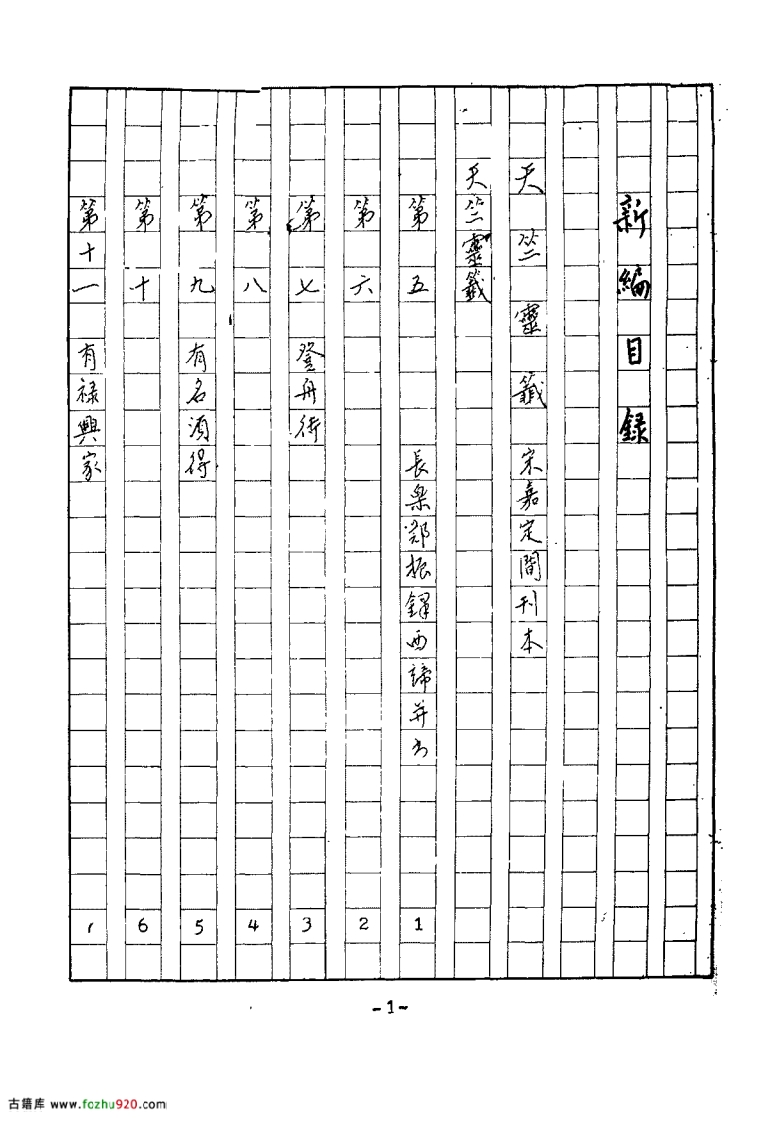 新編目録
天竺靈籤 宋嘉定間刊本
天竺靈籤
第五 長樂鄭振鐸西諦并書 1
第六 2
第七 登舟待 3
第八 4
第九 有名須得 5
第十 6
第十一 有禄興家
-1-
古籍库 www.fozhu920.com